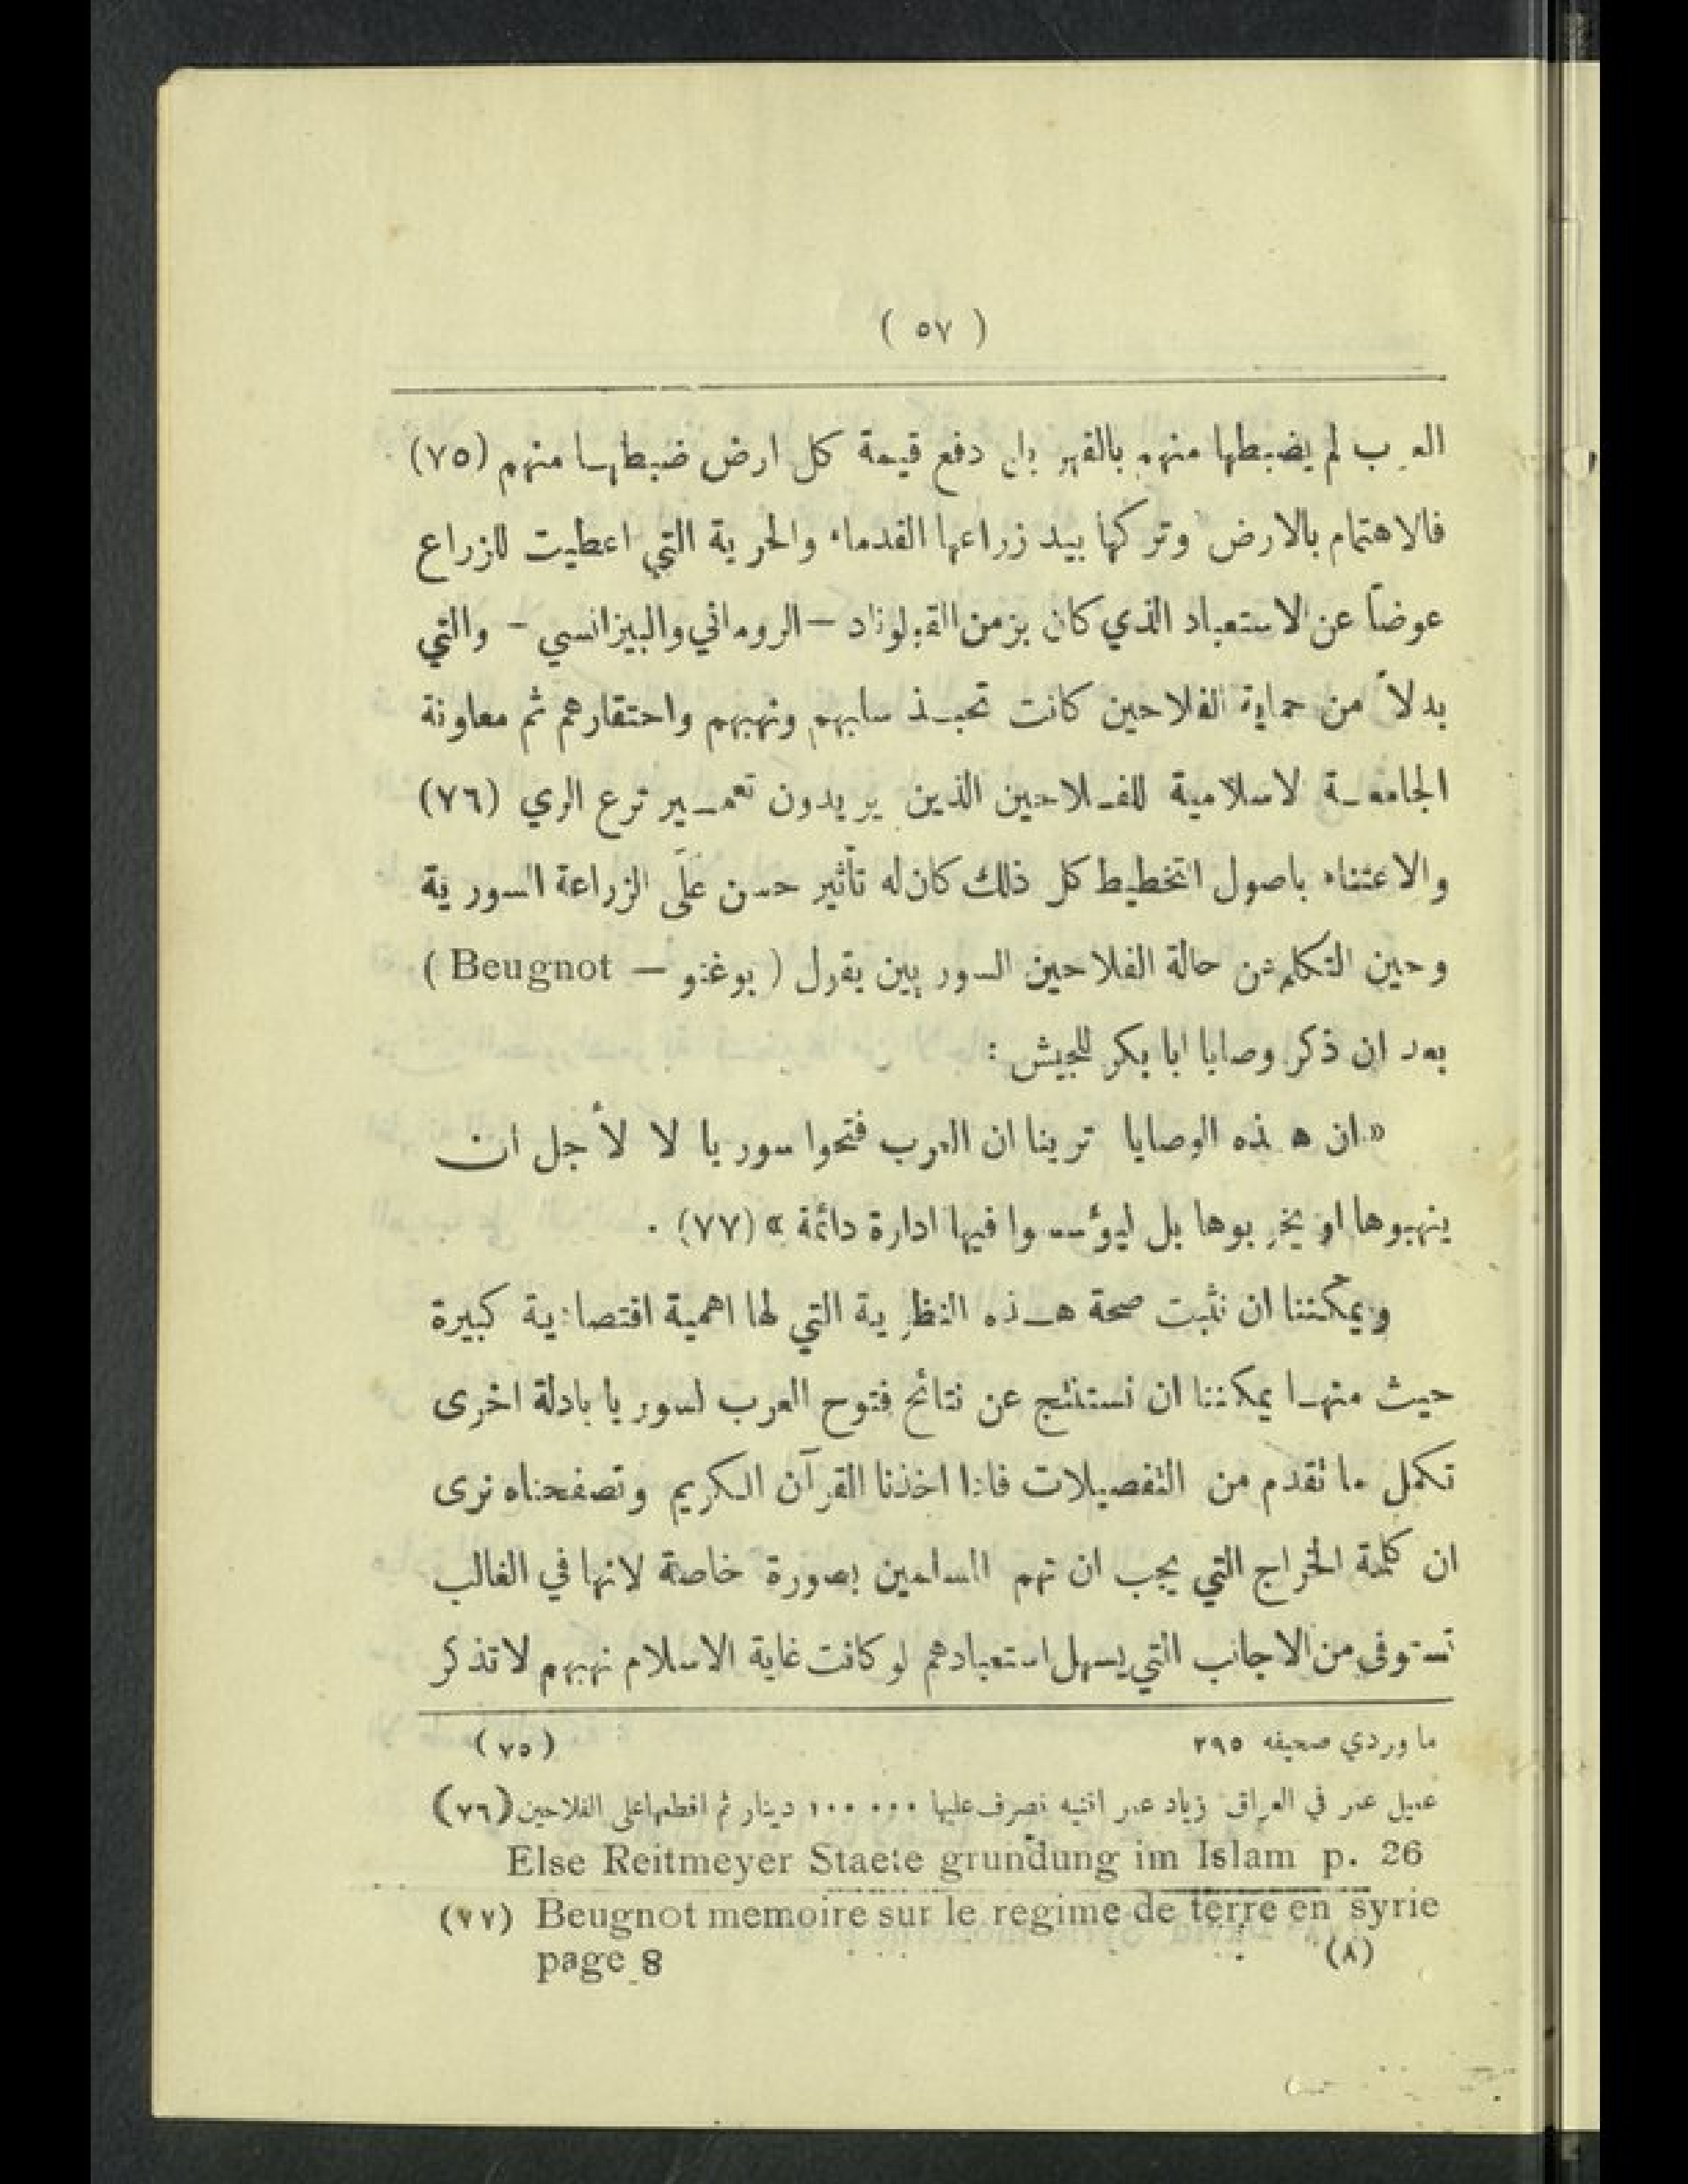 ( ٥٧ )
العرب لم يضبطها منهم بالقهر بل دفع قيمة كل ارض ضبطها منهم (٧٥)
فالاهتمام بالارض وتركها بيد زراعها القدماء والحرية التي اعطيت للزراع
عوضاً عن الاستعباد الذي كان بزمن القبولوناد – الروماني والبيزانسي – والتي
بدلاً من حماية الفلاحين كانت تحبذ سلبهم ونهبهم واحتقارهم ثم معاونة
الجامعة لاسلامية للفلاحين الذين يريدون تعمير ترع الري (٧٦)
والاعتناء باصول التخطيط كل ذلك كان له تأثير حسن عَلَى الزراعة السورية
وحين التكلم عن حالة الفلاحين السوريين يقول ( بوغنو – Beugnot )
بعد ان ذكر وصايا ابا بكر للجيش :
« ان هذه الوصايا ترينا ان العرب فتحوا سوريا لا لأجل ان
ينهبوها او يخربوها بل ليؤسسوا فيها ادارة دائمة » (٧٧) .
ويمكننا ان نثبت صحة هذه النظرية التي لها اهمية اقتصادية كبيرة
حيث منها يمكننا ان نستنتج عن نتائج فتوح العرب لسوريا بادلة اخرى
تكمل ما تقدم من التفصيلات فاذا اخذنا القرآن الكريم وتصفحناه نرى
ان كلمة الخراج التي يجب ان تهم المسلمين بصورة خاصة لانها في الغالب
تستوفى من الاجانب التي يسهل استعبادهم لو كانت غاية الاسلام نهبهم لا تذكر
(٧٥) ما وردي صحيفه ٢٩٥
(٧٦) عميل عمر في العراق زياد عمر اقنيه نصرف عليها ١٠٠٠٠٠ دينار ثم اقطعها على الفلاحين
Else Reitmeyer Staete grundung im Islam p. 26
(٧٧) Beugnot memoire sur le regime de terre en syrie
page 8 (٨)